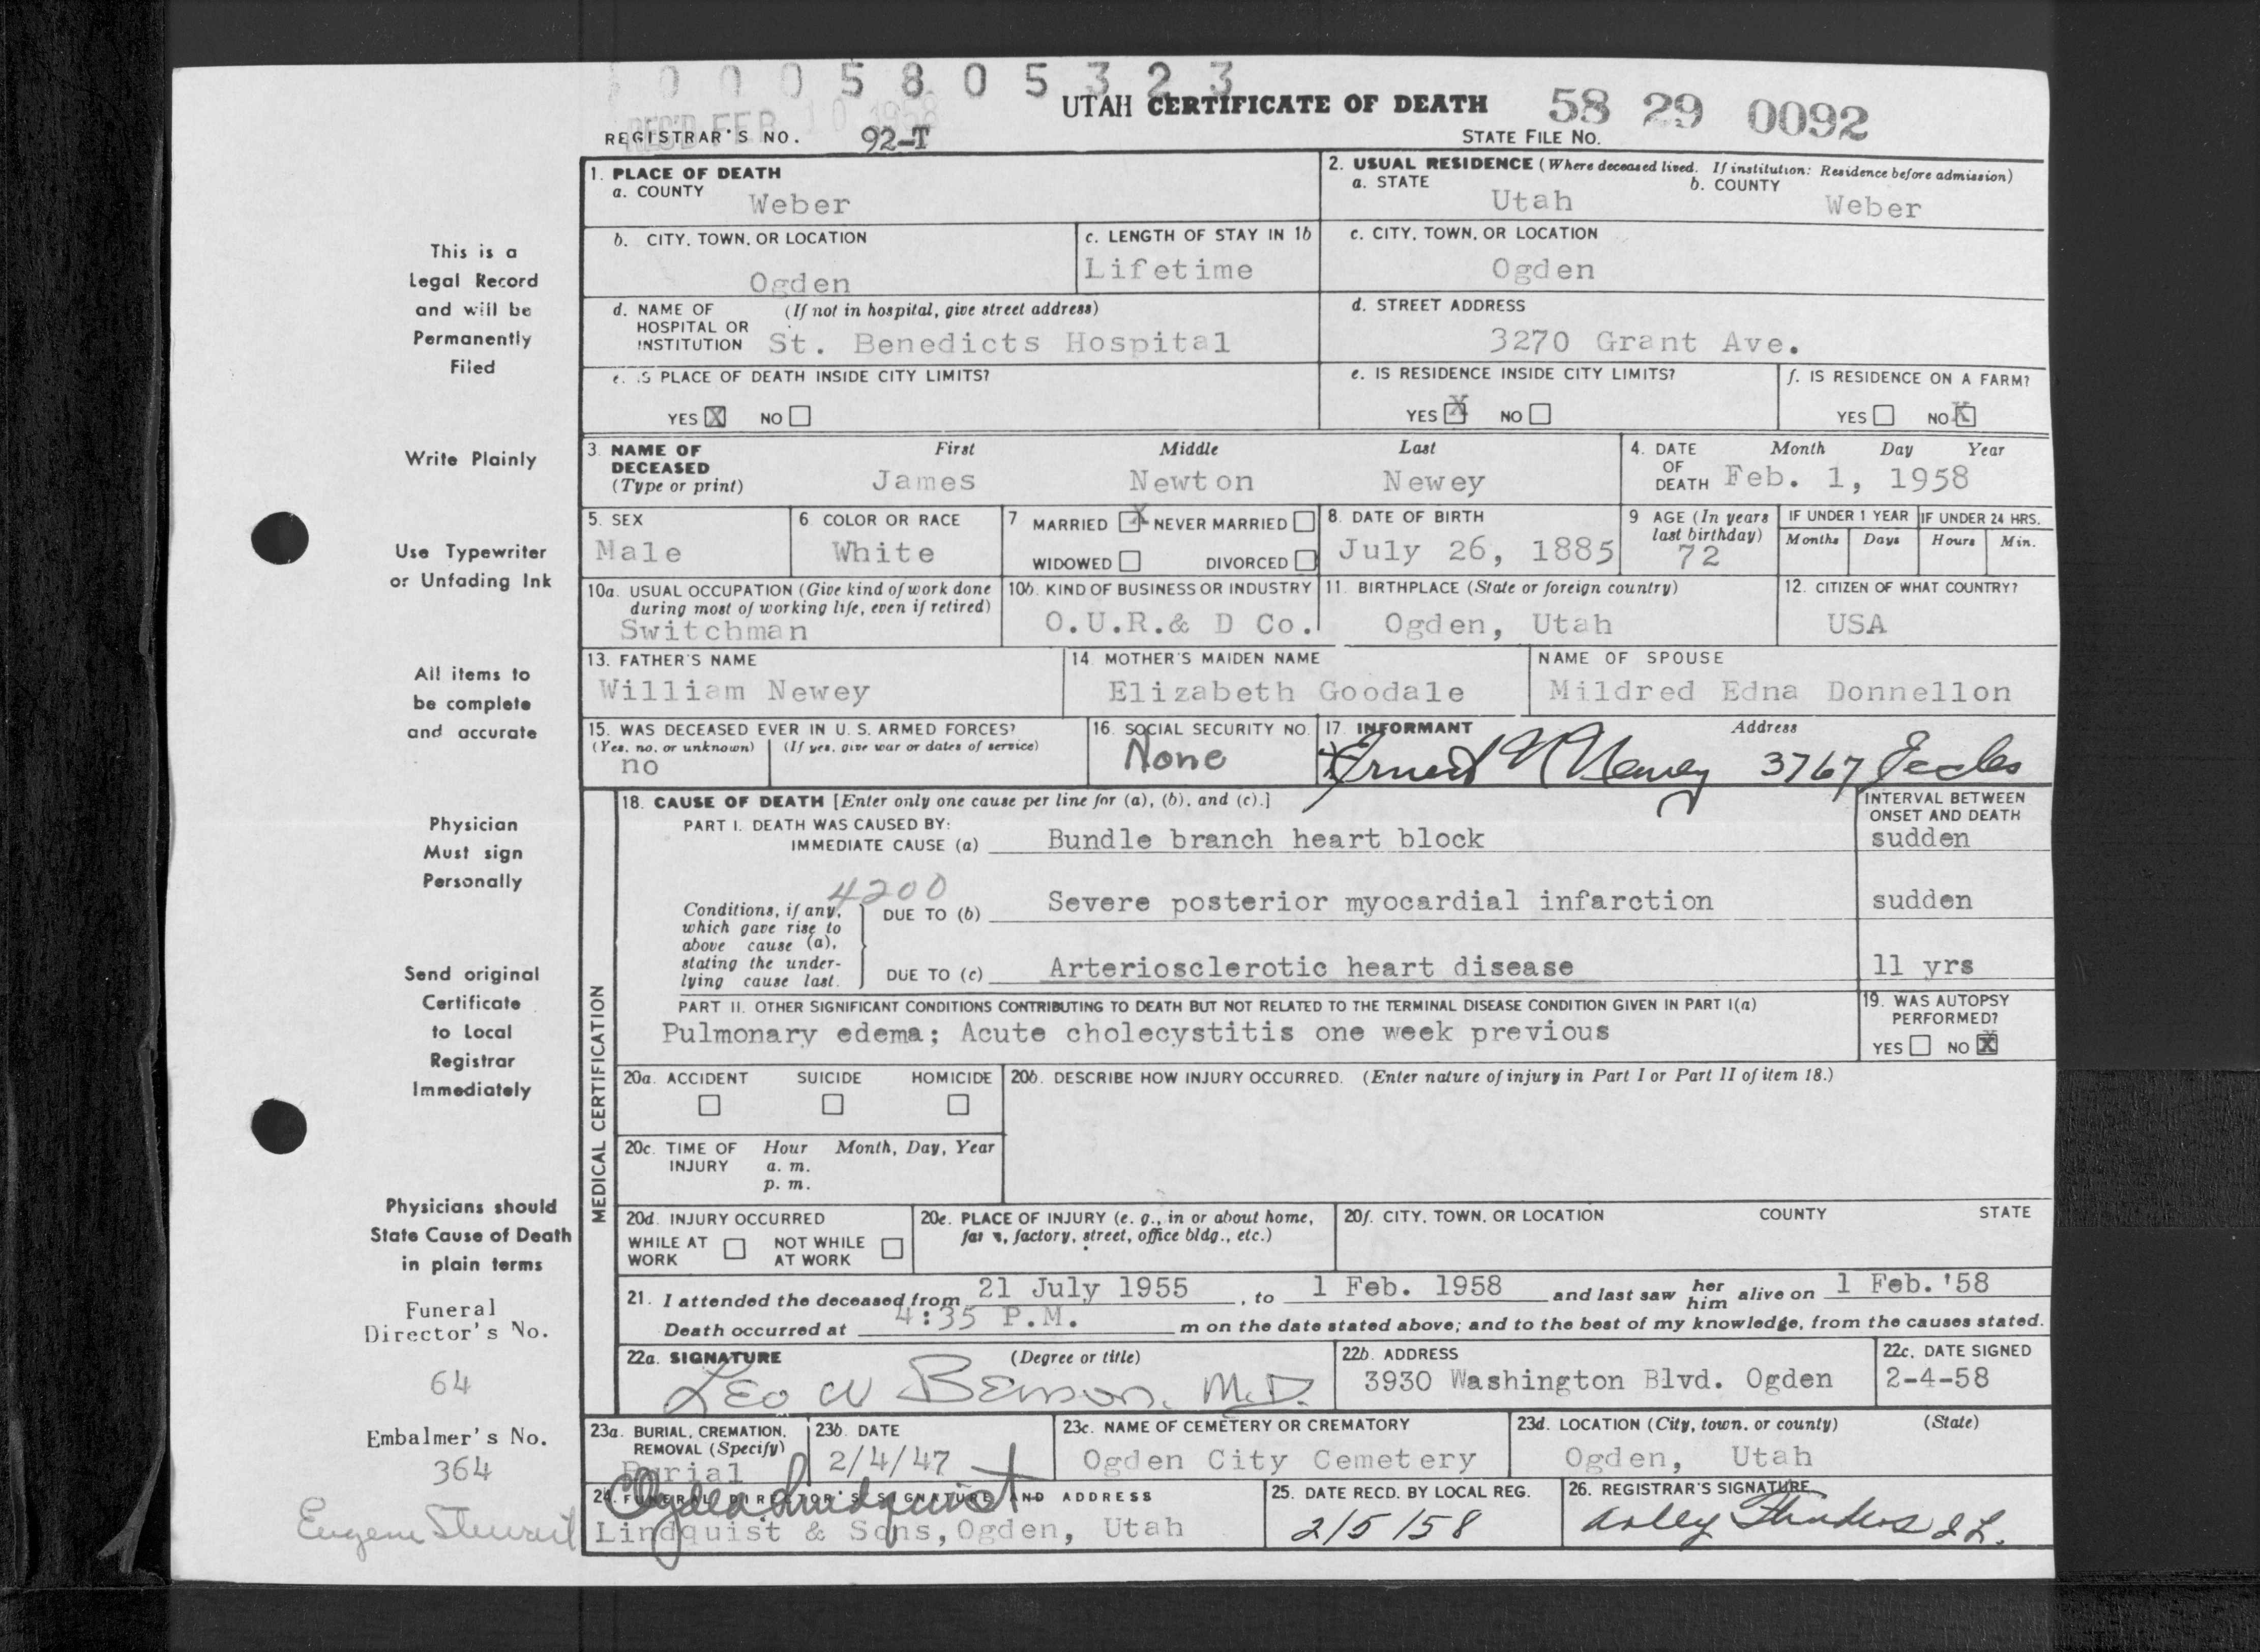 0 0 0 5 8 0 5 3 2 3
REC'D FEB 10 1958
UTAH CERTIFICATE OF DEATH 58 29 0092
REGISTRAR'S NO. 92-T STATE FILE NO.
1. PLACE OF DEATH
a. COUNTY
Weber
2. USUAL RESIDENCE (Where deceased lived. If institution: Residence before admission)
a. STATE b. COUNTY
Utah Weber
b. CITY, TOWN, OR LOCATION
Ogden
c. LENGTH OF STAY IN 1b
Lifetime
c. CITY, TOWN, OR LOCATION
Ogden
d. NAME OF (If not in hospital, give street address)
HOSPITAL OR
INSTITUTION St. Benedicts Hospital
d. STREET ADDRESS
3270 Grant Ave.
e. IS PLACE OF DEATH INSIDE CITY LIMITS?
YES X NO
e. IS RESIDENCE INSIDE CITY LIMITS?
YES X NO
f. IS RESIDENCE ON A FARM?
YES NO X
3. NAME OF First Middle Last
DECEASED
(Type or print) James Newton Newey
4. DATE Month Day Year
OF
DEATH Feb. 1, 1958
5. SEX
Male
6. COLOR OR RACE
White
7 MARRIED X NEVER MARRIED
WIDOWED DIVORCED
8. DATE OF BIRTH
July 26, 1885
9 AGE (In years
last birthday)
72
IF UNDER 1 YEAR IF UNDER 24 HRS.
Months Days Hours Min.
10a. USUAL OCCUPATION (Give kind of work done
during most of working life, even if retired)
Switchman
10b. KIND OF BUSINESS OR INDUSTRY
O.U.R.& D Co.
11. BIRTHPLACE (State or foreign country)
Ogden, Utah
12. CITIZEN OF WHAT COUNTRY?
USA
13. FATHER'S NAME
William Newey
14. MOTHER'S MAIDEN NAME
Elizabeth Goodale
NAME OF SPOUSE
Mildred Edna Donnellon
15. WAS DECEASED EVER IN U. S. ARMED FORCES?
(Yes, no, or unknown) (If yes, give war or dates of service)
no
16. SOCIAL SECURITY NO.
None
17. INFORMANT Address
Ernest N Newey 3767 Eccles
MEDICAL CERTIFICATION
18. CAUSE OF DEATH [Enter only one cause per line for (a), (b), and (c).]
INTERVAL BETWEEN
ONSET AND DEATH
PART I. DEATH WAS CAUSED BY:
IMMEDIATE CAUSE (a) Bundle branch heart block sudden
4200
Conditions, if any,
which gave rise to
above cause (a),
stating the under-
lying cause last.
DUE TO (b) Severe posterior myocardial infarction sudden
DUE TO (c) Arteriosclerotic heart disease 11 yrs
PART II. OTHER SIGNIFICANT CONDITIONS CONTRIBUTING TO DEATH BUT NOT RELATED TO THE TERMINAL DISEASE CONDITION GIVEN IN PART I(a)
Pulmonary edema; Acute cholecystitis one week previous
19. WAS AUTOPSY
PERFORMED?
YES NO X
20a. ACCIDENT SUICIDE HOMICIDE
20b. DESCRIBE HOW INJURY OCCURRED. (Enter nature of injury in Part I or Part II of item 18.)
20c. TIME OF Hour Month, Day, Year
INJURY a. m.
p. m.
20d. INJURY OCCURRED
WHILE AT NOT WHILE
WORK AT WORK
20e. PLACE OF INJURY (e. g., in or about home,
farm, factory, street, office bldg., etc.)
20f. CITY, TOWN, OR LOCATION COUNTY STATE
21. I attended the deceased from 21 July 1955, to 1 Feb. 1958 and last saw her him alive on 1 Feb.'58
Death occurred at 4:35 P.M. m on the date stated above; and to the best of my knowledge, from the causes stated.
22a. SIGNATURE (Degree or title)
Leo W Benson, M.D.
22b. ADDRESS
3930 Washington Blvd. Ogden
22c. DATE SIGNED
2-4-58
23a. BURIAL, CREMATION,
REMOVAL (Specify)
Burial
23b. DATE
2/4/47
23c. NAME OF CEMETERY OR CREMATORY
Ogden City Cemetery
23d. LOCATION (City, town, or county) (State)
Ogden, Utah
24. FUNERAL DIRECTOR'S SIGNATURE AND ADDRESS
Lindquist
Lindquist & Sons, Ogden, Utah
25. DATE RECD. BY LOCAL REG.
2/5/58
26. REGISTRAR'S SIGNATURE
This is a
Legal Record
and will be
Permanently
Filed
Write Plainly
Use Typewriter
or Unfading Ink
All items to
be complete
and accurate
Physician
Must sign
Personally
Send original
Certificate
to Local
Registrar
Immediately
Physicians should
State Cause of Death
in plain terms
Funeral
Director's No.
64
Embalmer's No.
364
Eugene Stewart